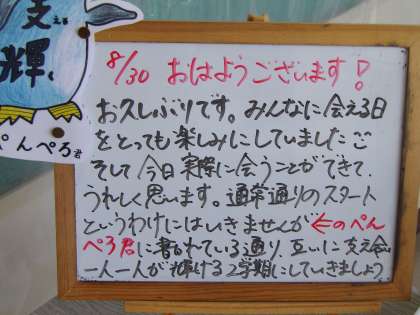 支える
輝く
ぺんぺろ君
8/30 おはようございます!
お久しぶりです。みんなに会える日
をとっても楽しみにしていました。
そして今日実際に会うことができて、
うれしく思います。通常通りのスタート
というわけにはいきませんが←のぺん
ぺろ君に書かれている通り、互いに支え合い
一人一人が輝ける2学期にしていきましょう